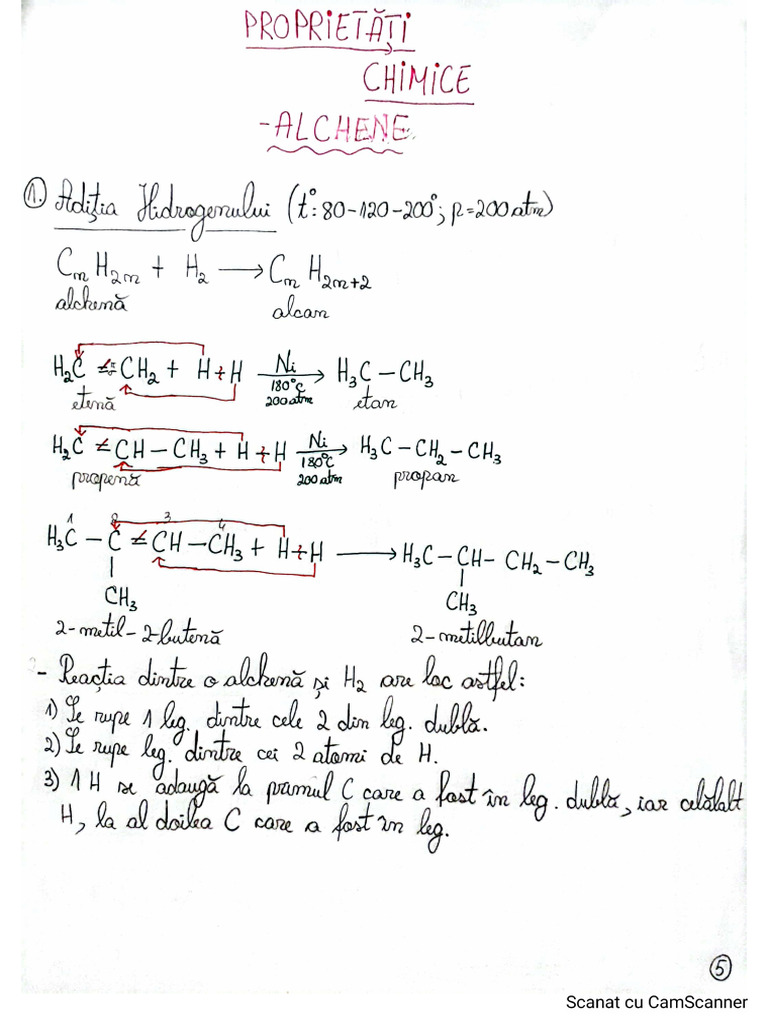 PROPRIETĂȚI
CHIMICE
-ALCHENE
1. Adiția Hidrogenului (t°: 80-120-200°; p=200 atm)
CnH2n + H2 ⟶ CnH2n+2
alchenă alcan
H2C = CH2 + H ÷ H Ni 180°C 200 atm ⟶ H3C – CH3
etenă etan
H2C = CH – CH3 + H ÷ H Ni 180°C 200 atm ⟶ H3C – CH2 – CH3
propenă propan
1 2 3 4
H3C – C = CH – CH3 + H ÷ H ⟶ H3C – CH – CH2 – CH3
| |
CH3 CH3
2-metil-2-butenă 2-metilbutan
- Reacția dintre o alchenă și H2 are loc astfel:
1) Se rupe 1 leg. dintre cele 2 din leg. dublă.
2) Se rupe leg. dintre cei 2 atomi de H.
3) 1 H se adaugă la primul C care a fost în leg. dublă, iar celălalt
H, la al doilea C care a fost în leg.
5
Scanat cu CamScanner